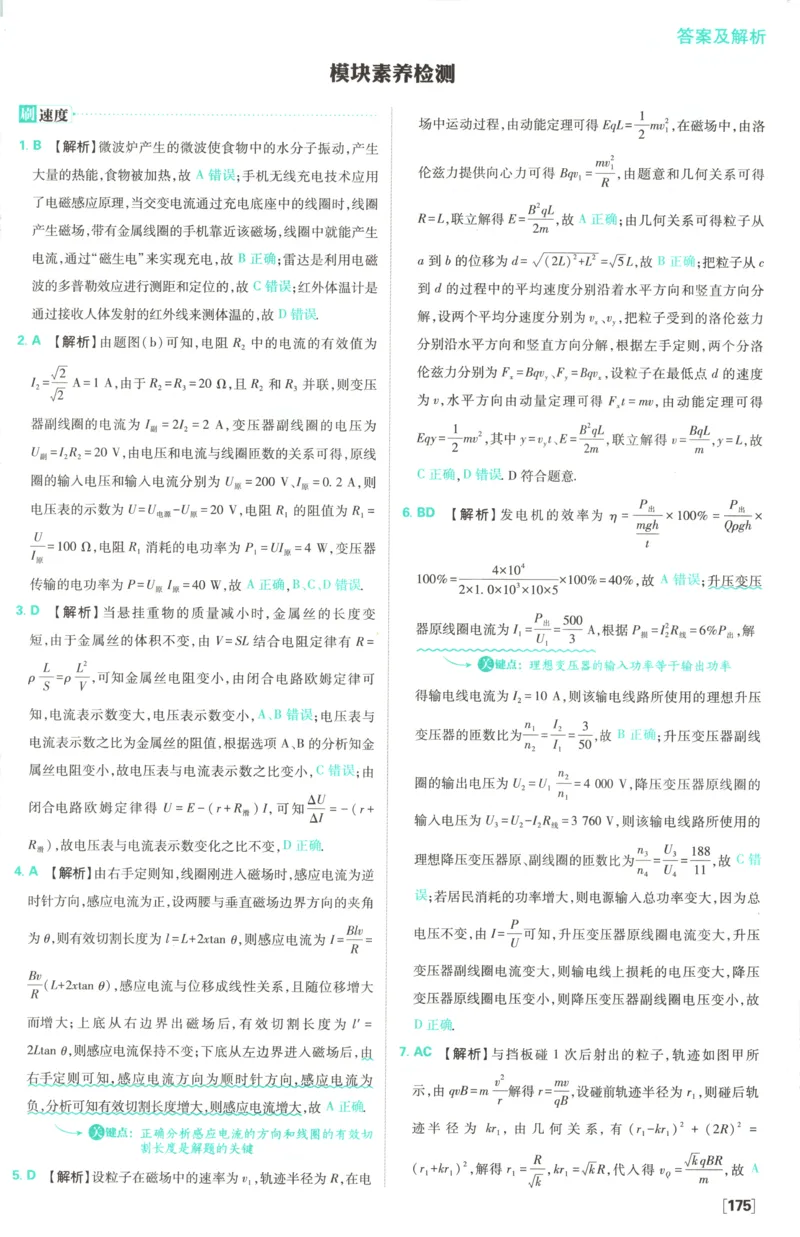 答案及解析
模块素养检测
刷速度
1. B 【解析】微波炉产生的微波使食物中的水分子振动,产生
大量的热能,食物被加热,故 A 错误;手机无线充电技术应用
了电磁感应原理,当交变电流通过充电底座中的线圈时,线圈
产生磁场,带有金属线圈的手机靠近该磁场,线圈中就能产生
电流,通过“磁生电”来实现充电,故 B 正确;雷达是利用电磁
波的多普勒效应进行测距和定位的,故 C 错误;红外体温计是
通过接收人体发射的红外线来测体温的,故 D 错误.
2. A 【解析】由题图(b)可知,电阻 R₂ 中的电流的有效值为
I₂=√2/√2 A=1 A,由于 R₂=R₃=20 Ω,且 R₂ 和 R₃ 并联,则变压
器副线圈的电流为 I副=2I₂=2 A,变压器副线圈的电压为
U副=I₂R₂=20 V,由电压和电流与线圈匝数的关系可得,原线
圈的输入电压和输入电流分别为 U原=200 V、I原=0.2 A,则
电压表的示数为 U=U电源-U原=20 V,电阻 R₁ 的阻值为 R₁=
U/I原=100 Ω,电阻 R₁ 消耗的电功率为 P₁=UI原=4 W,变压器
传输的电功率为 P=U原I原=40 W,故 A 正确,B、C、D 错误.
3. D 【解析】当悬挂重物的质量减小时,金属丝的长度变
短,由于金属丝的体积不变,由 V=SL 结合电阻定律有 R=
ρL/S=ρL²/V,可知金属丝电阻变小,由闭合电路欧姆定律可
知,电流表示数变大,电压表示数变小,A、B 错误;电压表与
电流表示数之比为金属丝的阻值,根据选项 A、B 的分析知金
属丝电阻变小,故电压表与电流表示数之比变小,C 错误;由
闭合电路欧姆定律得 U=E-(r+R滑)I,可知 ΔU/ΔI=-(r+
R滑),故电压表与电流表示数变化之比不变,D 正确.
4. A 【解析】由右手定则知,线圈刚进入磁场时,感应电流为逆
时针方向,感应电流为正,设两腰与垂直磁场边界方向的夹角
为 θ,则有效切割长度为 l=L+2xtan θ,则感应电流为 I=Blv/R=
Bv/R(L+2xtan θ),感应电流与位移成线性关系,且随位移增大
而增大;上底从右边界出磁场后,有效切割长度为 l′=
2Ltan θ,则感应电流保持不变;下底从左边界进入磁场后,由
右手定则可知,感应电流方向为顺时针方向,感应电流为
负,分析可知有效切割长度增大,则感应电流增大,故 A 正确.
关键点:正确分析感应电流的方向和线圈的有效切
割长度是解题的关键
5. D 【解析】设粒子在磁场中的速率为 v₁,轨迹半径为 R,在电
场中运动过程,由动能定理可得 EqL=1/2 mv₁²,在磁场中,由洛
伦兹力提供向心力可得 Bqv₁=mv₁²/R,由题意和几何关系可得
R=L,联立解得 E=B²qL/2m,故 A 正确;由几何关系可得粒子从
a 到 b 的位移为 d=√((2L)²+L²)=√5L,故 B 正确;把粒子从 c
到 d 的过程中的平均速度分别沿着水平方向和竖直方向分
解,设两个平均分速度分别为 vₓ、v_y,把粒子受到的洛伦兹力
分别沿水平方向和竖直方向分解,根据左手定则,两个分洛
伦兹力分别为 Fₓ=Bqv_y、F_y=Bqvₓ,设粒子在最低点 d 的速度
为 v,水平方向由动量定理可得 Fₓt=mv,由动能定理可得
Eqy=1/2 mv²,其中 y=v_yt、E=B²qL/2m,联立解得 v=BqL/m,y=L,故
C 正确,D 错误. D 符合题意.
6. BD 【解析】发电机的效率为 η=P出/(mgh/t)×100%=P出/Qρgh×
100%=4×10⁴/(2×1.0×10³×10×5)×100%=40%,故 A 错误;升压变压
器原线圈电流为 I₁=P出/U₁=500/3 A,根据 P损=I₂²R线=6%P出,解
关键点:理想变压器的输入功率等于输出功率
得输电线电流为 I₂=10 A,则该输电线路所使用的理想升压
变压器的匝数比为 n₁/n₂=I₂/I₁=3/50,故 B 正确;升压变压器副线
圈的输出电压为 U₂=U₁ n₂/n₁=4 000 V,降压变压器原线圈的
输入电压为 U₃=U₂-I₂R线=3 760 V,则该输电线路所使用的
理想降压变压器原、副线圈的匝数比为 n₃/n₄=U₃/U₄=188/11,故 C 错
误;若居民消耗的功率增大,则电源输入总功率变大,因为总
电压不变,由 I=P/U可知,升压变压器原线圈电流变大,升压
变压器副线圈电流变大,则输电线上损耗的电压变大,降压
变压器原线圈电压变小,则降压变压器副线圈电压变小,故
D 正确.
7. AC 【解析】与挡板碰 1 次后射出的粒子,轨迹如图甲所
示,由 qvB=m v²/r 解得 r=mv/qB,设碰前轨迹半径为 r₁,则碰后轨
迹半径为 kr₁,由几何关系,有(r₁-kr₁)²+(2R)²=
(r₁+kr₁)²,解得 r₁=R/√k,kr₁=√kR,代入得 v_Q=√kqBR/m,故 A
[175]